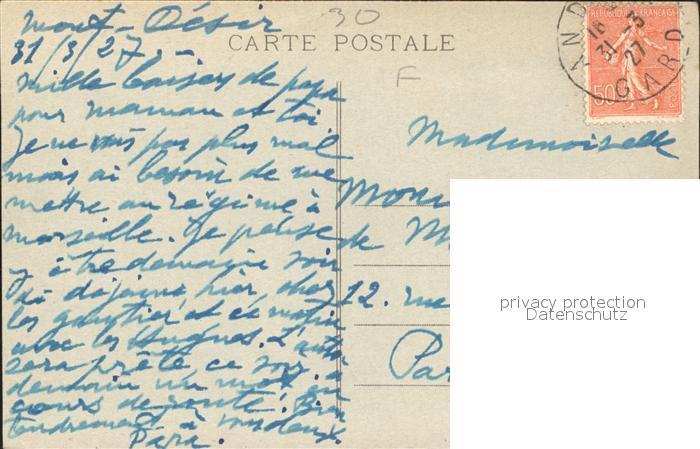 Mont-Désir
31/3/27. -
30
CARTE POSTALE
F
Mille baisers de papa
pour maman et toi
Je ne vais pas plus mal
mais ai besoin de me
mettre au régime à
Marseille. Je pense
y être demain soir
J'ai déjeuné hier chez
les Gautier et ce matin
avec les Hugues. L'auto
sera prête ce soir. à
demain un mot en
cours de route. Bien
tendrement à vous deux.
Papa.
Mademoiselle
de
12. rue
Par
REPUBLIQUE FRANÇAISE
50
31-3
27
GARD
privacy protection
Datenschutz